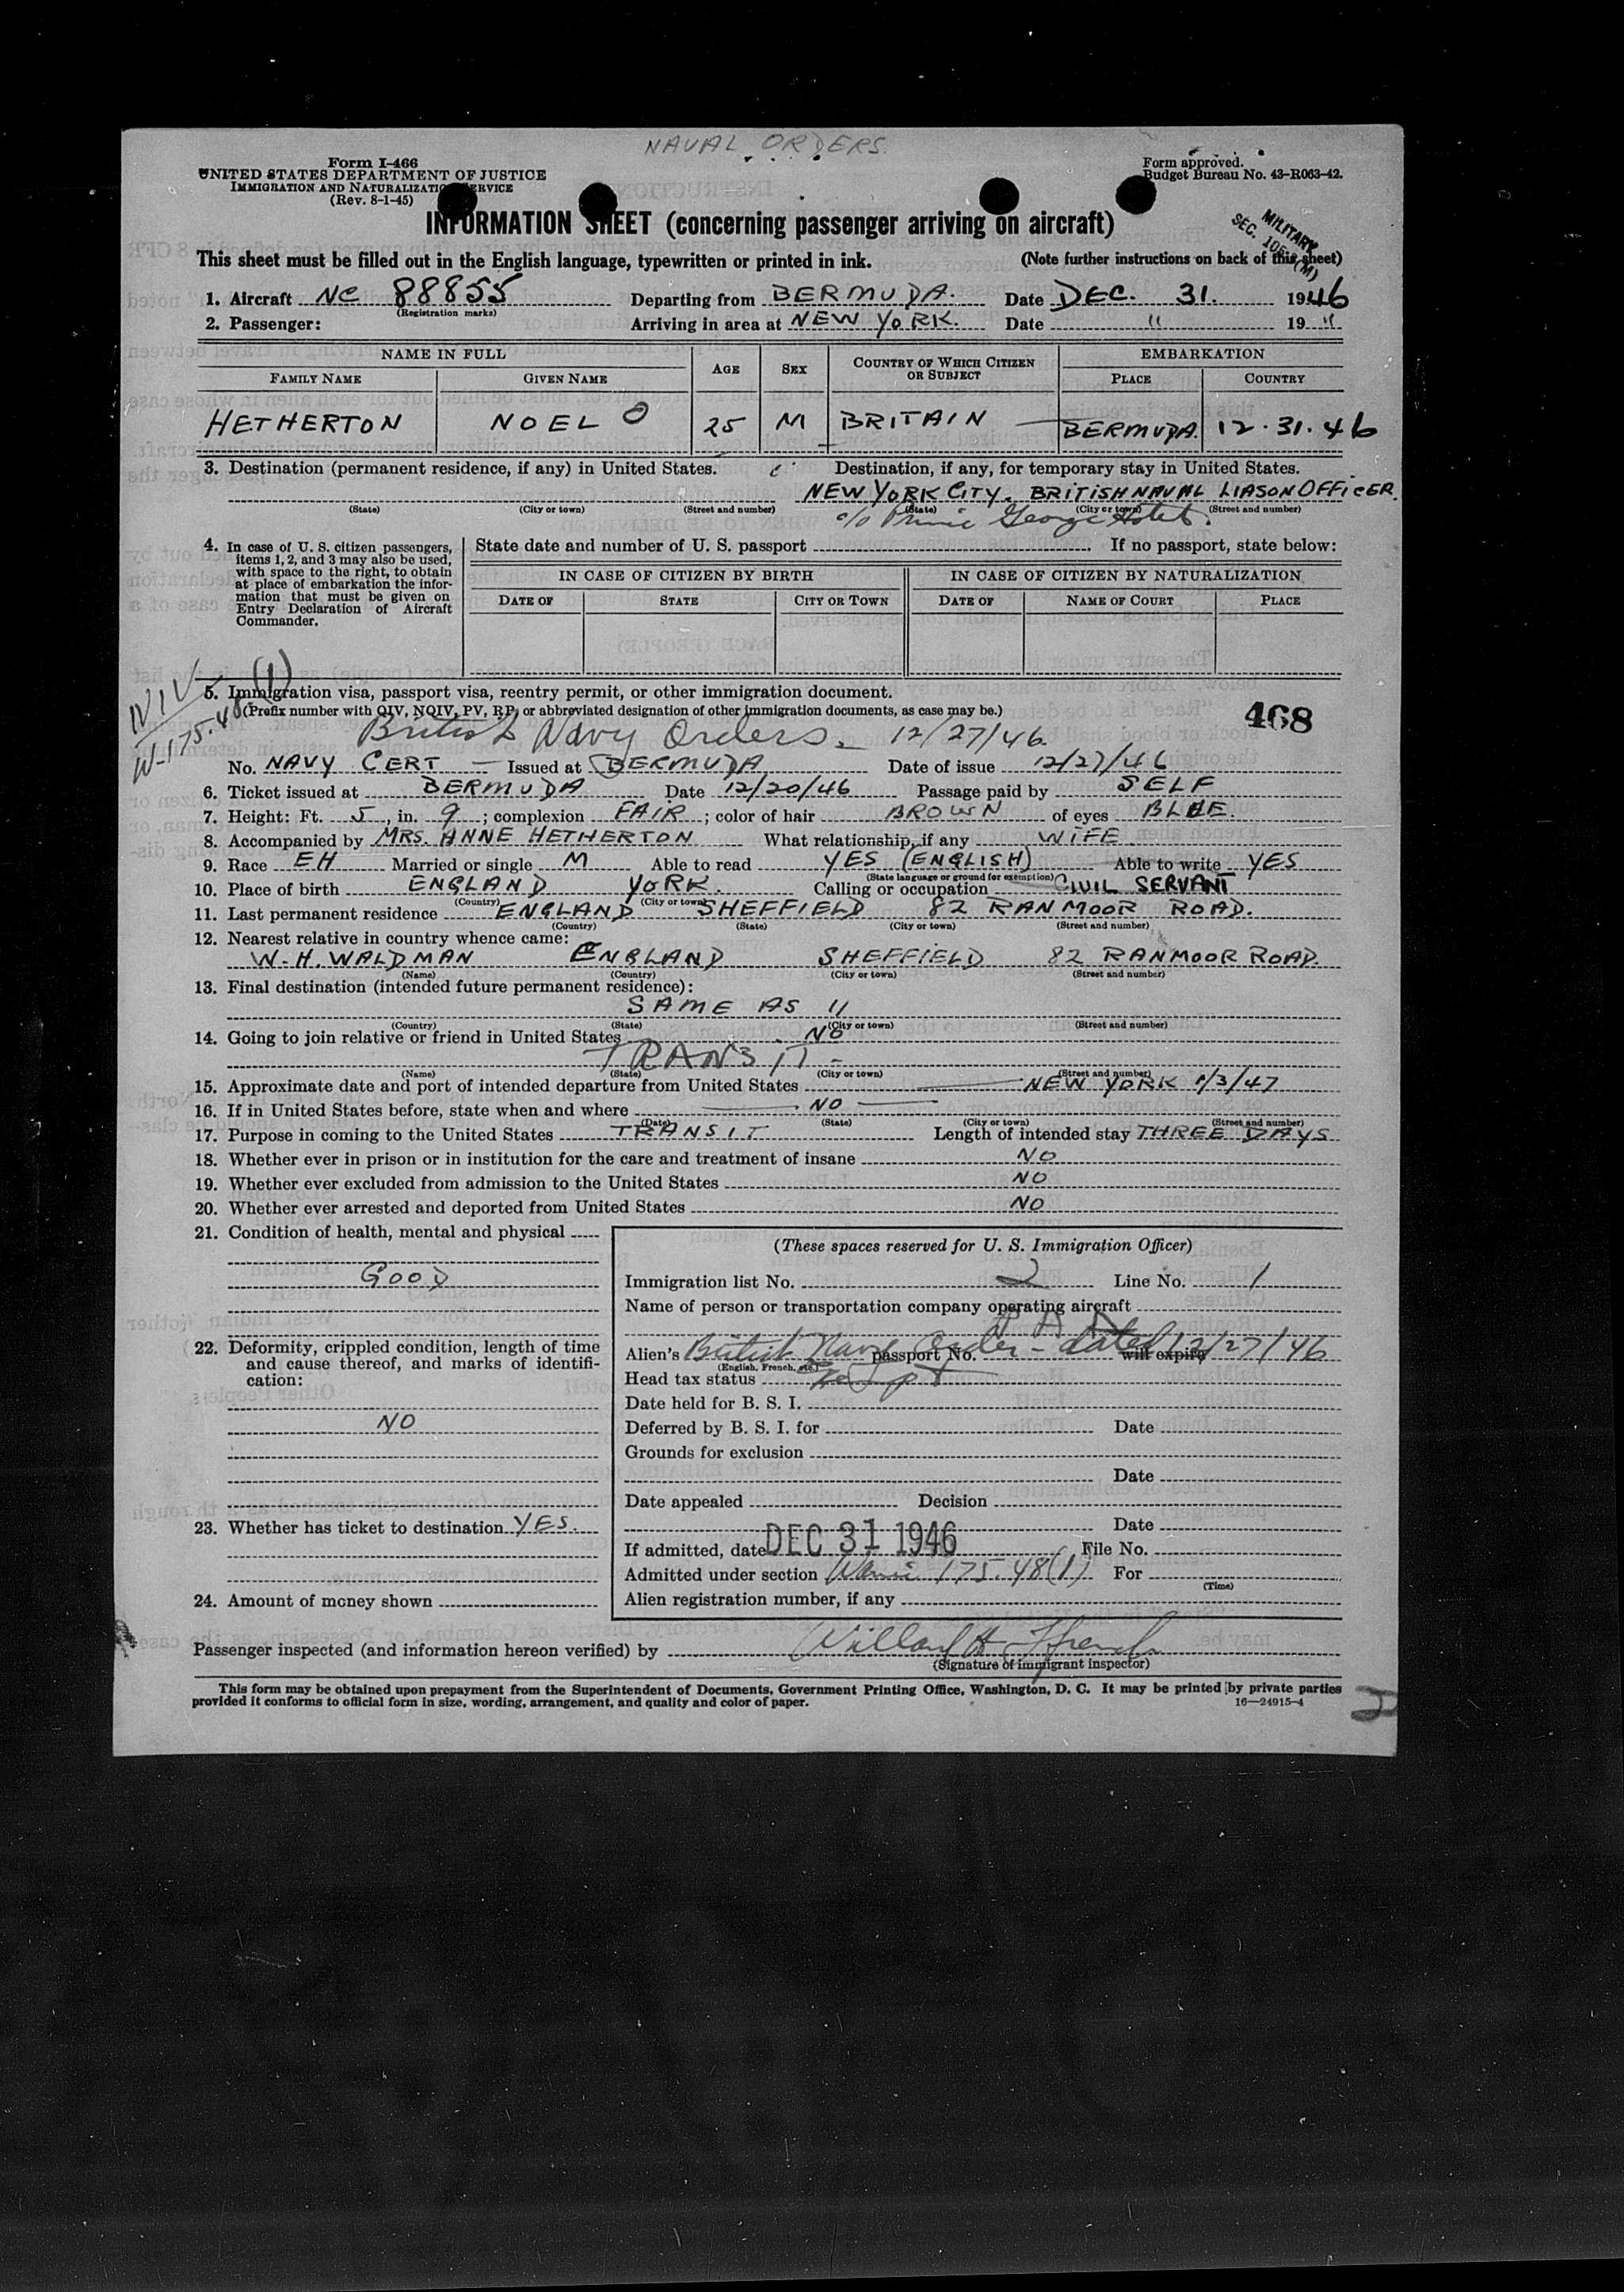 NAVAL ORDERS
Form I-466
UNITED STATES DEPARTMENT OF JUSTICE
IMMIGRATION AND NATURALIZATION SERVICE
(Rev. 8-1-45)
Form approved.
Budget Bureau No. 43-R063-42.
INFORMATION SHEET (concerning passenger arriving on aircraft)
MILITARY
This sheet must be filled out in the English language, typewritten or printed in ink. (Note further instructions on back of this sheet)
1. Aircraft NC 88855 Departing from BERMUDA. Date DEC. 31. 1946
(Registration marks)
2. Passenger: Arriving in area at NEW YORK. Date " 19 "
NAME IN FULL AGE SEX COUNTRY OF WHICH CITIZEN OR SUBJECT EMBARKATION
FAMILY NAME GIVEN NAME PLACE COUNTRY
HETHERTON NOEL O 25 M BRITAIN BERMUDA. 12.31.46
3. Destination (permanent residence, if any) in United States. Destination, if any, for temporary stay in United States.
NEW YORK CITY. BRITISH NAVAL LIASON OFFICER.
(State) (City or town) (Street and number) (State) (City or town) (Street and number)
c/o Prince George Hotel.
4. In case of U. S. citizen passengers, items 1, 2, and 3 may also be used, with space to the right, to obtain at place of embarkation the information that must be given on Entry Declaration of Aircraft Commander.
State date and number of U. S. passport If no passport, state below:
IN CASE OF CITIZEN BY BIRTH IN CASE OF CITIZEN BY NATURALIZATION
DATE OF STATE CITY OR TOWN DATE OF NAME OF COURT PLACE
5. Immigration visa, passport visa, reentry permit, or other immigration document.
(Prefix number with QIV, NQIV, PV, RP, or abbreviated designation of other immigration documents, as case may be.)
468
British Navy Orders. 12/27/46
No. NAVY CERT — Issued at BERMUDA Date of issue 12/27/46
6. Ticket issued at BERMUDA Date 12/20/46 Passage paid by SELF
7. Height: Ft. 5, in. 9; complexion FAIR; color of hair BROWN of eyes BLUE.
8. Accompanied by MRS. ANNE HETHERTON What relationship, if any WIFE.
9. Race EH Married or single M Able to read YES (ENGLISH) Able to write YES
(State language or ground for exemption)
10. Place of birth ENGLAND YORK. Calling or occupation CIVIL SERVANT
(Country) (City or town)
11. Last permanent residence ENGLAND SHEFFIELD 82 RANMOOR ROAD.
(Country) (State) (City or town) (Street and number)
12. Nearest relative in country whence came:
W.H. WALDMAN ENGLAND SHEFFIELD 82 RANMOOR ROAD.
(Name) (Country) (City or town) (Street and number)
13. Final destination (intended future permanent residence):
SAME AS 11
(Country) (State) (City or town) (Street and number)
14. Going to join relative or friend in United States NO
TRANSIT -
(Name) (State) (City or town) (Street and number)
15. Approximate date and port of intended departure from United States NEW YORK 1/3/47
16. If in United States before, state when and where NO
(Date) (State) (City or town) (Street and number)
17. Purpose in coming to the United States TRANSIT Length of intended stay THREE DAYS
18. Whether ever in prison or in institution for the care and treatment of insane NO
19. Whether ever excluded from admission to the United States NO
20. Whether ever arrested and deported from United States NO
21. Condition of health, mental and physical
GOOD
22. Deformity, crippled condition, length of time and cause thereof, and marks of identification:
NO
23. Whether has ticket to destination YES.
24. Amount of money shown
(These spaces reserved for U. S. Immigration Officer)
Immigration list No. 2 Line No. 1
Name of person or transportation company operating aircraft
P A A
Alien's British Navy passport No. Order - dated will expire 12/27/46
(English, French, etc.)
Head tax status
Date held for B. S. I.
Deferred by B. S. I. for Date
Grounds for exclusion
Date
Date appealed Decision
Date
If admitted, date DEC 31 1946 File No.
Admitted under section 175.48(1) For
(Time)
Alien registration number, if any
Passenger inspected (and information hereon verified) by Willard H.
(Signature of immigrant inspector)
This form may be obtained upon prepayment from the Superintendent of Documents, Government Printing Office, Washington, D. C. It may be printed by private parties
provided it conforms to official form in size, wording, arrangement, and quality and color of paper. 16—24915-4